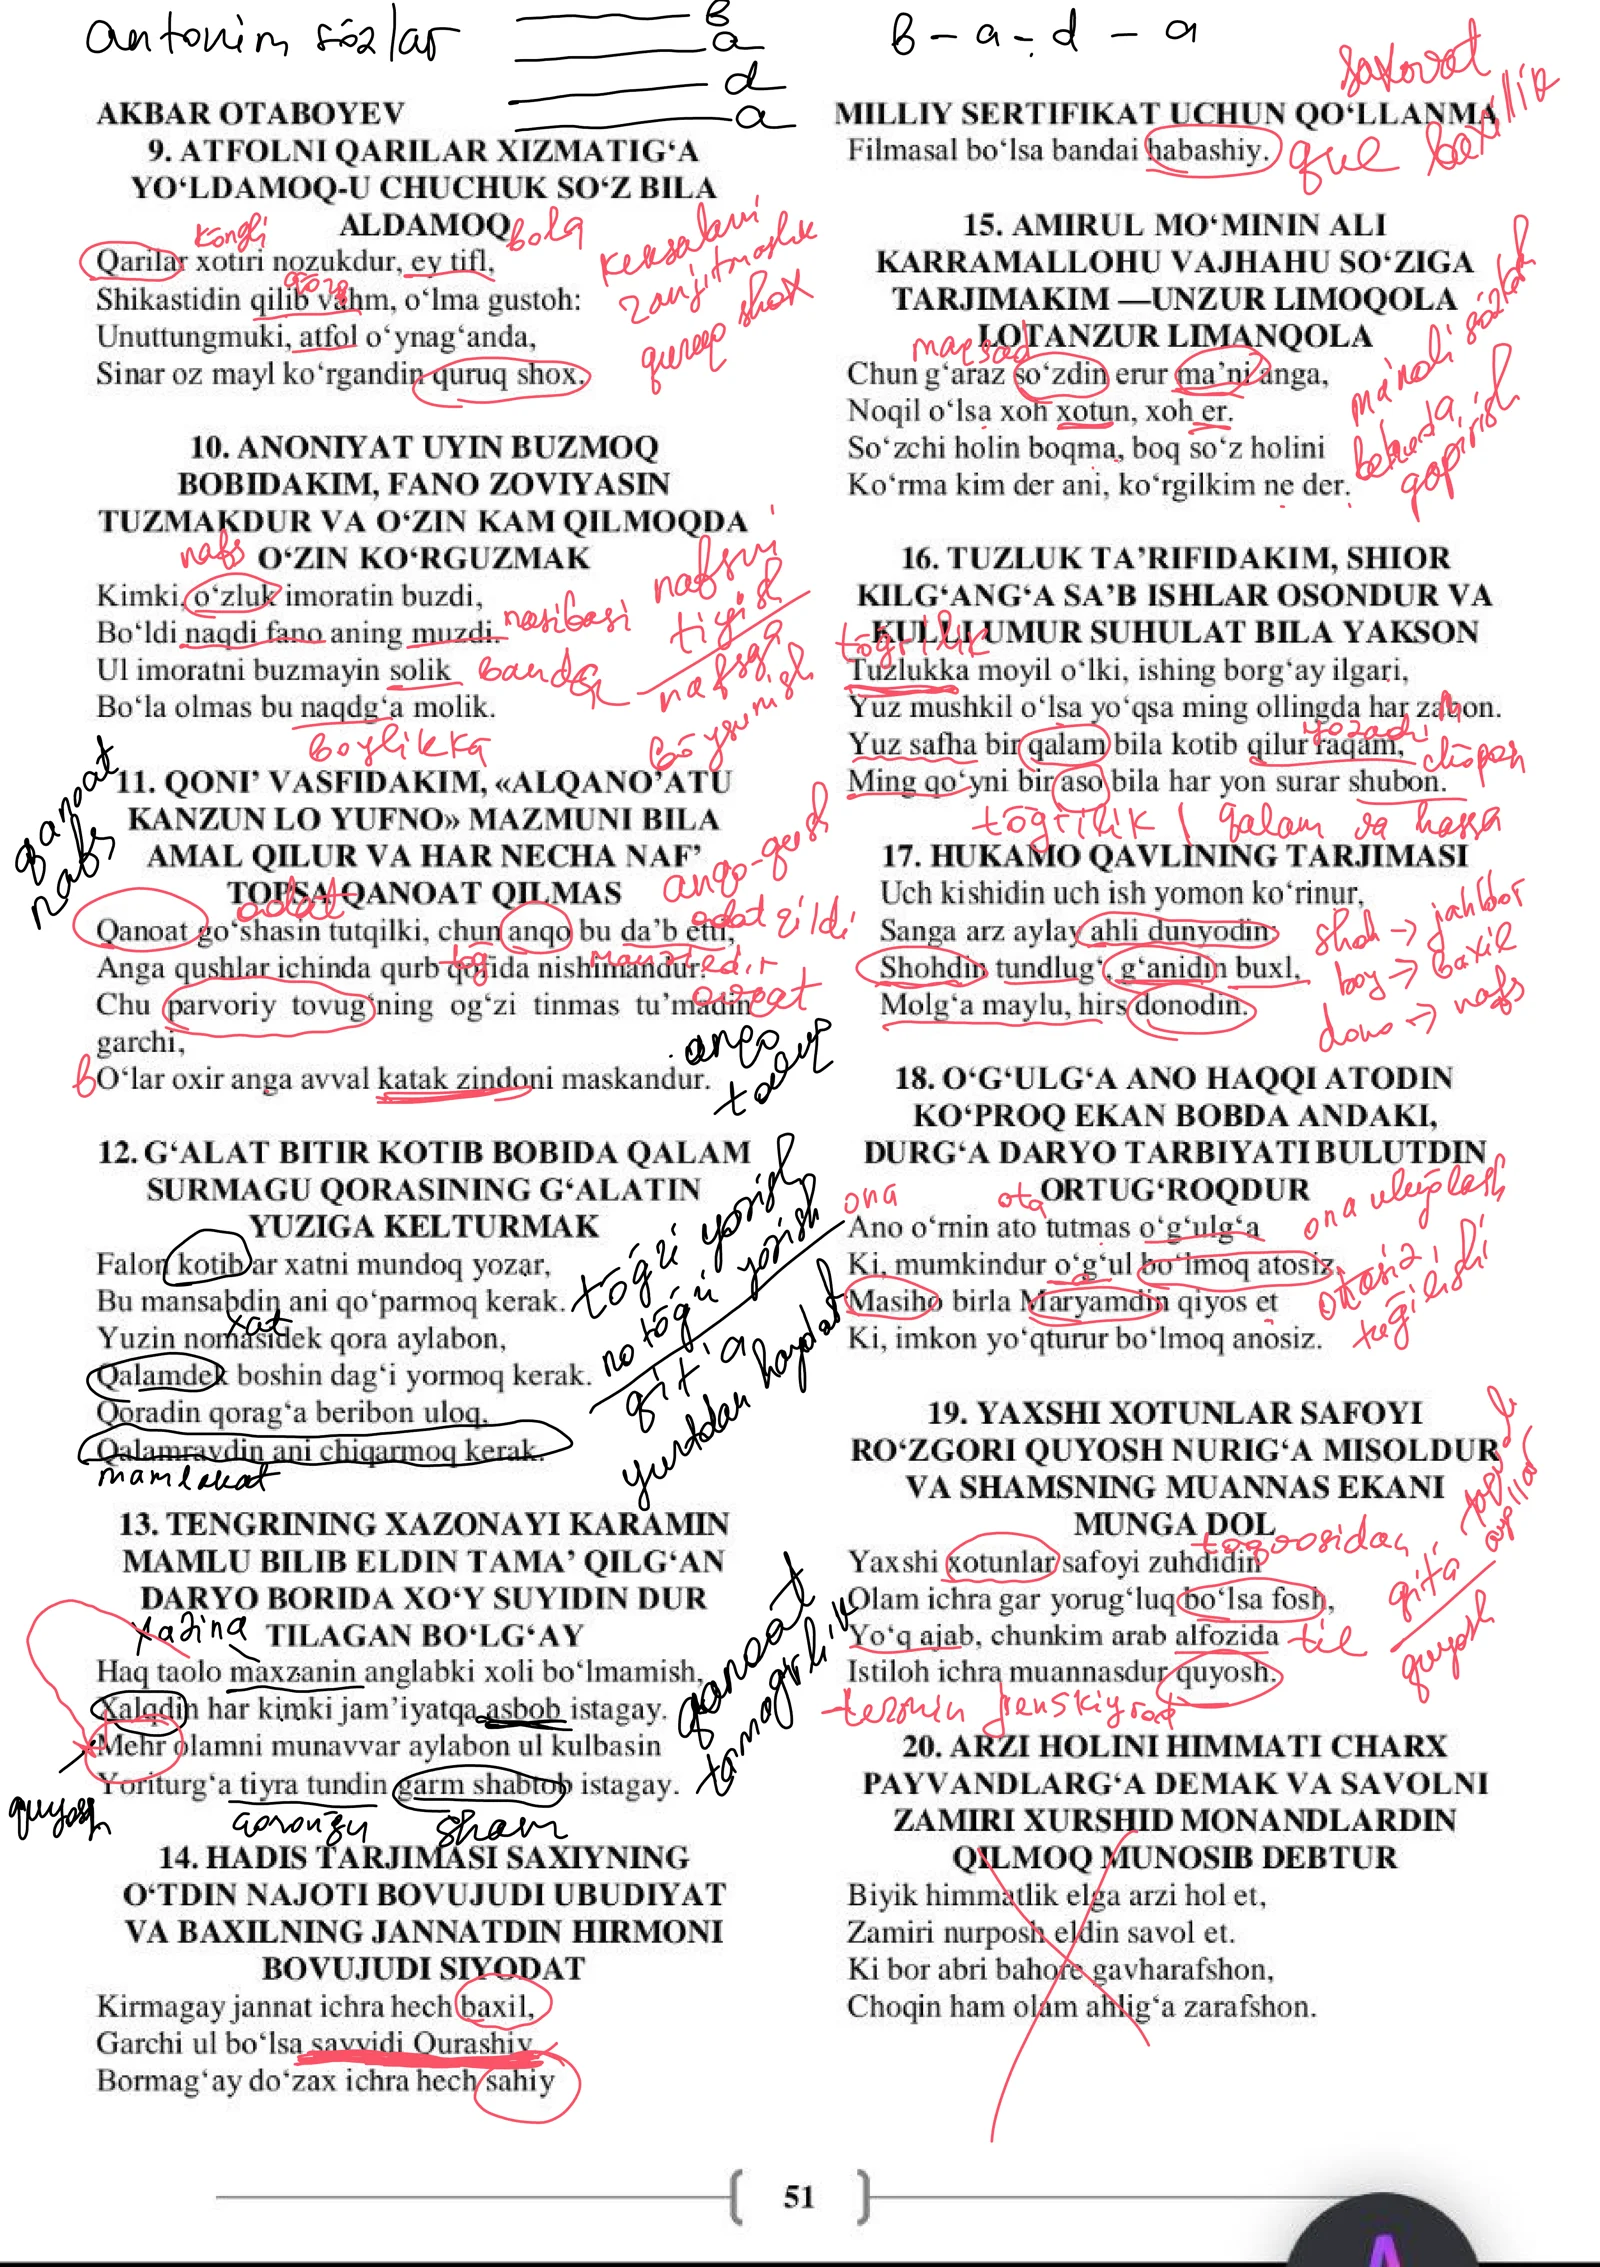 antonim so'zlar
B
a
d
a
B - a - d - a
AKBAR OTABOYEV
9. ATFOLNI QARILAR XIZMATIG‘A
YO‘LDAMOQ-U CHUCHUK SO‘Z BILA
ALDAMOQ
ko'ngli
bola
Qarilar xotiri nozukdur, ey tifl,
Shikastidin qilib vahm, o‘lma gustoh:
Unuttungmuki, atfol o‘ynag‘anda,
Sinar oz mayl ko‘rgandin quruq shox.
keksalarni
quruq shox
10. ANONIYAT UYIN BUZMOQ
BOBIDAKIM, FANO ZOVIYASIN
TUZMAKDUR VA O‘ZIN KAM QILMOQDA
O‘ZIN KO‘RGUZMAK
nafs
Kimki, o‘zluk imoratin buzdi,
Bo‘ldi naqdi fano aning muzdi.
Ul imoratni buzmayin solik
Bo‘la olmas bu naqdg‘a molik.
nasibasi
banda
boylikka
nafsni
tiyish
nafsga
bo'ysunish
qanoat
nafs
11. QONI’ VASFIDAKIM, «ALQANO’ATU
KANZUN LO YUFNO» MAZMUNI BILA
AMAL QILUR VA HAR NECHA NAF’
TOPSA QANOAT QILMAS
odat
Qanoat go‘shasin tutqilki, chun anqo bu da’b etti,
Anga qushlar ichinda qurb qofida nishimandur.
Chu parvoriy tovug‘ning og‘zi tinmas tu’madin
garchi,
O‘lar oxir anga avval katak zindoni maskandur.
anqo-qush
odat qildi
tog'
ovqat
anqo
tovuq
12. G‘ALAT BITIR KOTIB BOBIDA QALAM
SURMAGU QORASINING G‘ALATIN
YUZIGA KELTURMAK
Falon kotib ar xatni mundoq yozar,
Bu mansabdin ani qo‘parmoq kerak.
Yuzin nomasidek qora aylabon,
Qalamdek boshin dag‘i yormoq kerak.
Qoradin qorag‘a beribon uloq,
Qalamravdin ani chiqarmoq kerak.
xat
mamlakat
to'g'ri yozish
noto'g'ri yozish
qit'a
yurtdan haydab
13. TENGRINING XAZONAYI KARAMIN
MAMLU BILIB ELDIN TAMA’ QILG‘AN
DARYO BORIDA XO‘Y SUYIDIN DUR
TILAGAN BO‘LG‘AY
xazina
Haq taolo maxzanin anglabki xoli bo‘lmamish,
Xalqdin har kimki jam’iyatqa asbob istagay.
Mehr olamni munavvar aylabon ul kulbasin
Yoriturg‘a tiyra tundin garm shabtob istagay.
quyosh
qorong'u
sham
qanoat
tamagirlik
14. HADIS TARJIMASI SAXIYNING
O‘TDIN NAJOTI BOVUJUDI UBUDIYAT
VA BAXILNING JANNATDIN HIRMONI
BOVUJUDI SIYODAT
Kirmagay jannat ichra hech baxil,
Garchi ul bo‘lsa sayyidi Qurashiy
Bormag‘ay do‘zax ichra hech sahiy
MILLIY SERTIFIKAT UCHUN QO‘LLANMA
Filmasal bo‘lsa bandai habashiy.
qul
saxovat
baxillik
15. AMIRUL MO‘MININ ALI
KARRAMALLOHU VAJHAHU SO‘ZIGA
TARJIMAKIM —UNZUR LIMOQOLA
LOTANZUR LIMANQOLA
maqsad
Chun g‘araz so‘zdin erur ma’ni anga,
Noqil o‘lsa xoh xotun, xoh er.
So‘zchi holin boqma, boq so‘z holini
Ko‘rma kim der ani, ko‘rgilkim ne der.
ma'noli so'zlash
behuda
gapirish
16. TUZLUK TA’RIFIDAKIM, SHIOR
KILG‘ANG‘A SA’B ISHLAR OSONDUR VA
KULLI UMUR SUHULAT BILA YAKSON
to'g'rilik
Tuzlukka moyil o‘lki, ishing borg‘ay ilgari,
Yuz mushkil o‘lsa yo‘qsa ming ollingda har zabon.
Yuz safha bir qalam bila kotib qilur raqam,
Ming qo‘yni bir aso bila har yon surar shubon.
yozadi
cho'pon
to'g'rilik | qalam va hassa
17. HUKAMO QAVLINING TARJIMASI
Uch kishidin uch ish yomon ko‘rinur,
Sanga arz aylay ahli dunyodin:
Shohdin tundlug‘, g‘anidin buxl,
Molg‘a maylu, hirs donodin.
shoh → jahldor
boy → baxil
dono → nafs
18. O‘G‘ULG‘A ANO HAQQI ATODIN
KO‘PROQ EKAN BOBDA ANDAKI,
DURG‘A DARYO TARBIYATI BULUTDIN
ORTUG‘ROQDUR
ona
ota
Ano o‘rnin ato tutmas o‘g‘ulg‘a
Ki, mumkindur o‘g‘ul bo‘lmoq atosiz,
Masiho birla Maryamdin qiyos et
Ki, imkon yo‘qturur bo‘lmoq anosiz.
ona ulug'lash
otasiz
tug'ilishi
19. YAXSHI XOTUNLAR SAFOYI
RO‘ZGORI QUYOSH NURIG‘A MISOLDUR
VA SHAMSNING MUANNAS EKANI
MUNGA DOL
taqvosidan
Yaxshi xotunlar safoyi zuhdidin
Olam ichra gar yorug‘luq bo‘lsa fosh,
Yo‘q ajab, chunkim arab alfozida
Istiloh ichra muannasdur quyosh.
til
termin
qit'a
ayollar
quyosh
20. ARZI HOLINI HIMMATI CHARX
PAYVANDLARG‘A DEMAK VA SAVOLNI
ZAMIRI XURSHID MONANDLARDIN
QILMOQ MUNOSIB DEBTUR
Biyik himmatlik elga arzi hol et,
Zamiri nurposh eldin savol et.
Ki bor abri bahore gavharafshon,
Choqin ham olam ahlig‘a zarafshon.
51